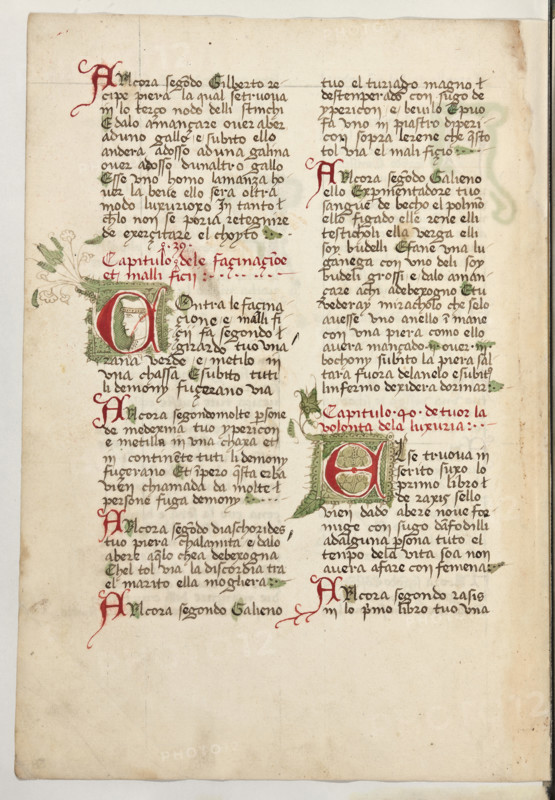 Ancora segõdo Gilberto re
cipe piera la qual se truova
in lo terço nodo delli stinchi
E dalo amançare over aber
aduno gallo e subito ello
andera adosso aduna galina
over adosso dunaltro gallo
Esse uno homo lamanza ho
ver la beve ello sera oltra
modo luxurioxo In tanto ł
chlo non se poria retegnire
de exerçitare el choyto
c̊ 39
Capitulo dele façinaçiõe
et malli ficii
Contra le facina
cione e malli fi
cii fa segondo ł
girardo tuo una
rana verde e metilo in
una chassa E subito tuti
li demony fuçerano via
Ancora segondo molte psone
de medexima tuo ypericon
e metilla in una chaxa et
in continẽte tuti li demony
fuçerano Et ĩpero q̃sta erba
vien chiamada da molte ł
persone fuga demony
Ancora segõdo diaschorides
tuo piera chalamita e dalo
abere aq̃lo chea debexogna
Chel tol via la discordia tra
el marito ella mogliera
Ancora segondo Galieno
tuo el turiago magno ł
destenperado con sugo de
ypericon e bevilo E puo
fa uno inpiastro diperi
con sopra lerene che q̃sto
tol via el mali fiçio
Ancora segõdo Galieno
ello Expimentadore tuo
sangue de becho el polmõ
ello figado elle rene elli
testicholi ella verga elli
soy budelli E fane una lu
ganega con uno deli soy
budeli grossi e dalo aman
care achi adebexogno E tu
vederay miracholo che solo
avesse uno anello ĩ mane
con una piera como ello
avera mançado over in
bochony subito la piera sal
tara fuora delanelo e subito
linfermo dexidera dorinar
Capitulo 40 de tuor la
volonta dela luxuria
El se truova in
scrito suxo lo
primo libro ł
de raxis sello
vien dado abere nove for
mige con sugo dasfodilli
adalguna psona tuto el
tenpo dela vita soa non
avera afare con femena
Ancora segondo rasis
in lo pmo libro tuo una